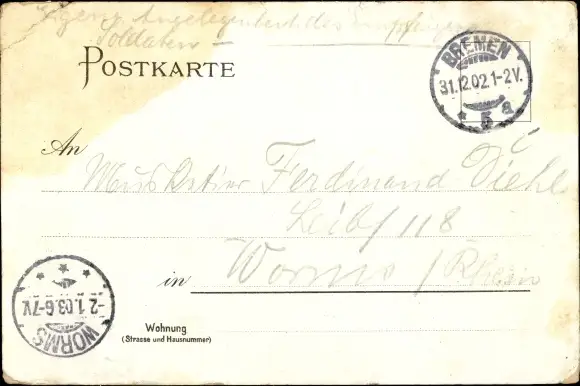 Eigene Angelegenheit des Empfängers
Soldaten –
POSTKARTE
BREMEN
31.12.02.1-2V.
* 5 a
An
Musketier Ferdinand Diehl
Leib/118
in Worms / Rhein
WORMS
-2.1.03.6-7V.
Wohnung
(Strasse und Hausnummer)